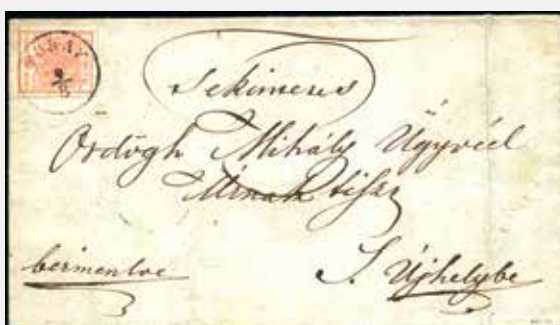 TOKAY
Tekintetes
Ördögh Mihály Ügyvéd
Úrnak tisz
bérmentve
S. Újhelybe